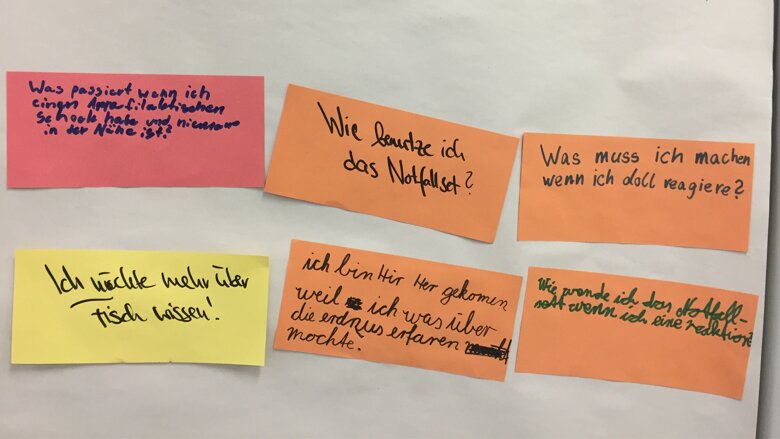 Was passiert wann ich
einen Anafilaktischen
Schock habe und niemand
in der Nähe ist?
Wie benutze ich
das Notfallset?
Was muss ich machen
wenn ich doll reagiere?
Ich möchte mehr über
Fisch wissen!
ich bin Hir Her gekomen
weil ich was über
die erdnus erfaren
mochte.
Wie wende ich das Notfall-
sett wenn ich eine reaktion